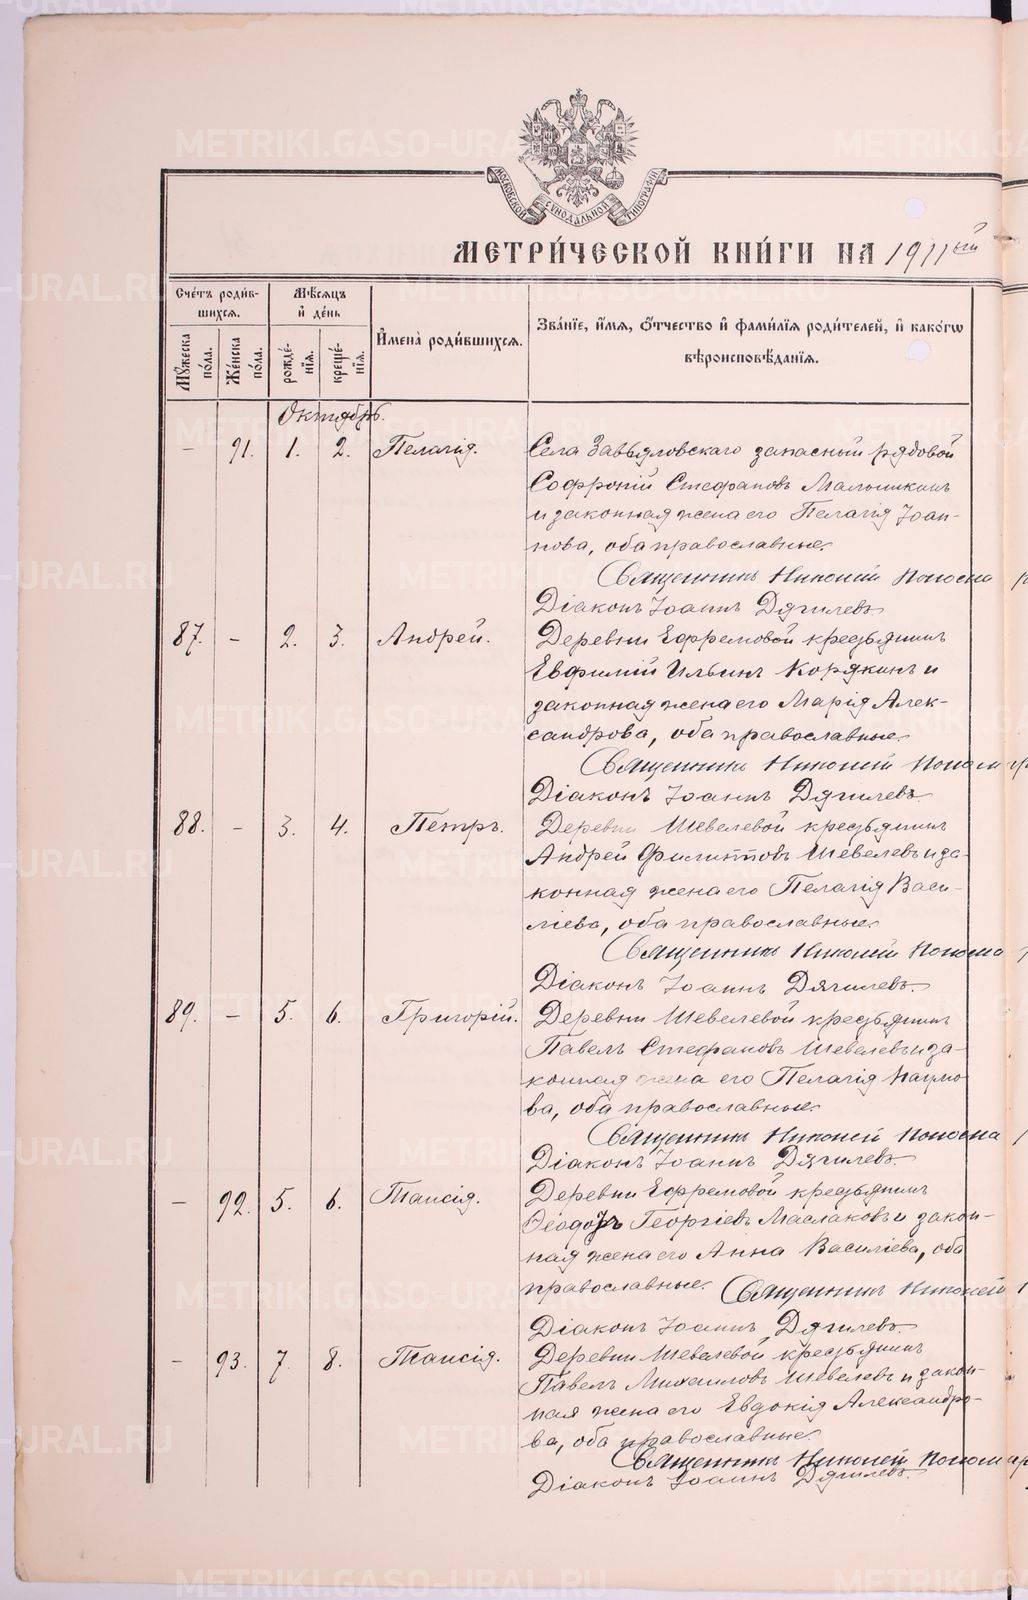 МОСКОВСКОЙ СУНОДАЛЬНОЙ ТИПОГРАФІИ
МЕТРИ́ЧЕСКОЙ КНИ́ГИ НА 1911ый
Сче́тъ роди́в-
шихсѧ.
Мѣ́сѧцъ
и҆ де́нь
И҆мена̀ роди́вшихсѧ.
Зва́нїе, и҆́мѧ, ѻ҆́тчество и҆ фами́лїѧ роди́телей, и҆ како́гѡ
вѣроисповѣ́данїѧ.
Мꙋ́жеска
по́ла.
Же́нска
по́ла.
рожде́-
нїѧ.
креще́-
нїѧ.
Октябрь.
— 91. 1. 2. Пелагія. Села Завьяловскаго запасный рядовой
Софроній Стефановъ Мальчикинъ
и законная жена его Пелагія Іоан-
нова, оба православные.
Священникъ Николай
Діаконъ Іоаннъ Дягилевъ
87. — 2. 3. Андрей. Деревни Ефремовой крестьянинъ
Евфимій Ильинъ Корякинъ и
законная жена его Марія Алек-
сандрова, оба православные.
Священникъ Николай
Діаконъ Іоаннъ Дягилевъ
88. — 3. 4. Петръ. Деревни Шевелевой крестьянинъ
Андрей Филипповъ Шевелевъ и за-
конная жена его Пелагія Васи-
ліева, оба православные.
Священникъ Николай
Діаконъ Іоаннъ Дягилевъ.
89. — 5. 6. Григорій. Деревни Шевелевой крестьянинъ
Павелъ Стефановъ Шевелевъ и за-
конная жена его Пелагія Наумо-
ва, оба православные.
Священникъ Николай
Діаконъ Іоаннъ Дягилевъ.
— 92. 5. 6. Таисія. Деревни Ефремовой крестьянинъ
Ѳеодоръ Георгіевъ Маслаковъ и закон-
ная жена его Анна Василіева, оба
православные. Священникъ Николай
Діаконъ Іоаннъ Дягилевъ.
— 93. 7. 8. Таисія. Деревни Шевелевой крестьянинъ
Павелъ Михаиловъ Шевелевъ и закон-
ная жена его Евдокія Александро-
ва, оба православные.
Священникъ Николай
Діаконъ Іоаннъ Дягилевъ.
METRIKI.GASO-URAL.RU